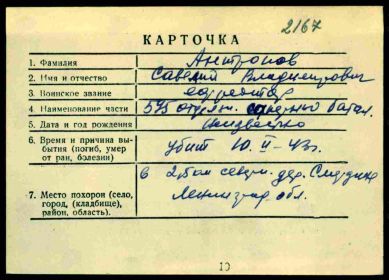 2167
КАРТОЧКА
1. Фамилия Антропов
2. Имя и отчество Савелий Владимирович
3. Воинское звание ефрейтор
4. Наименование части 575 отдельн. батал.
5. Дата и год рождения Неизвестно
6. Время и причина вы-
бытия (погиб, умер
от ран, болезни) убит 10.II-43г.
7. Место похорон (село,
город, (кладбище),
район, область). в 2,5 км дер.
Ленинград обл.
10